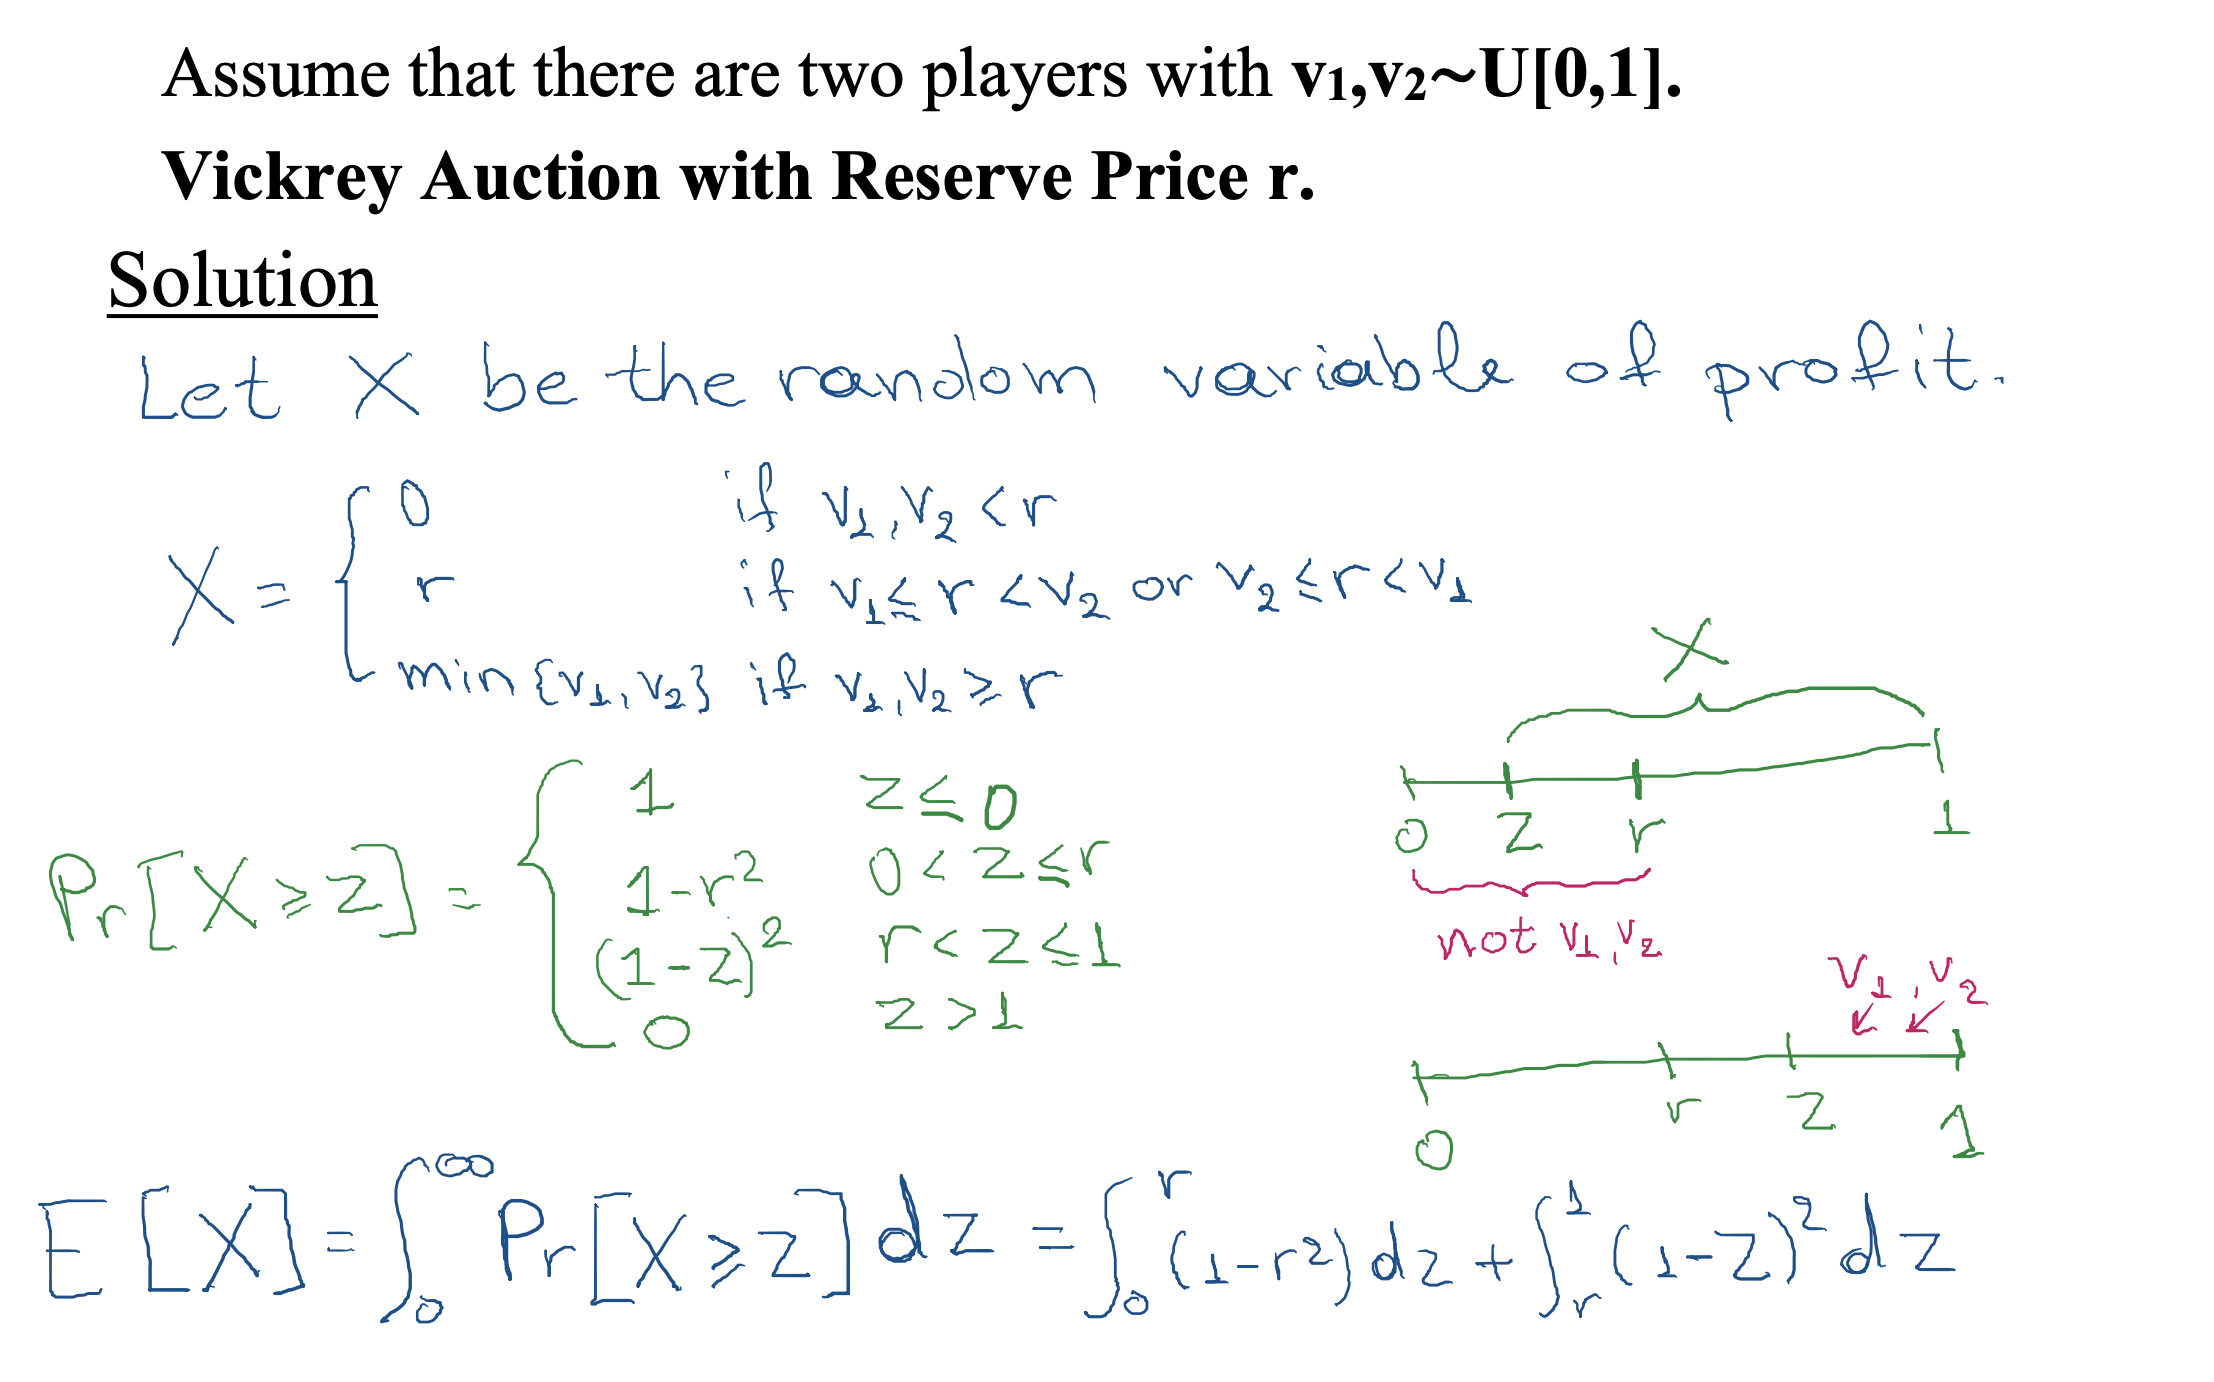 Assume that there are two players with v₁,v₂~U[0,1].
Vickrey Auction with Reserve Price r.
Solution
Let X be the random variable of profit.
X = { 0 if v₁,v₂ < r
r if v₁ ≤ r < v₂ or v₂ ≤ r < v₁
min{v₁,v₂} if v₁,v₂ ≥ r
Pr[X ≥ z] = { 1 z ≤ 0
1-r² 0 < z ≤ r
(1-z)² r < z ≤ 1
0 z > 1
X
0 z r 1
not v₁,v₂
v₁,v₂
0 r z 1
E[X] = ∫₀^∞ Pr[X ≥ z] dz = ∫₀^r (1-r²) dz + ∫ᵣ^1 (1-z)² dz